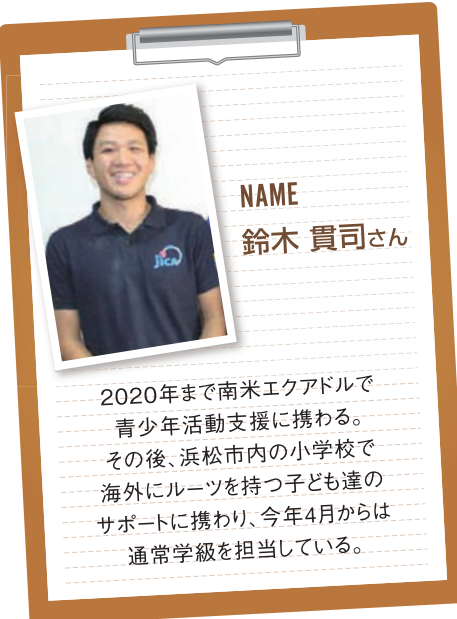 jica
NAME
鈴木 貫司さん
2020年まで南米エクアドルで
青少年活動支援に携わる。
その後、浜松市内の小学校で
海外にルーツを持つ子ども達の
サポートに携わり、今年4月からは
通常学級を担当している。